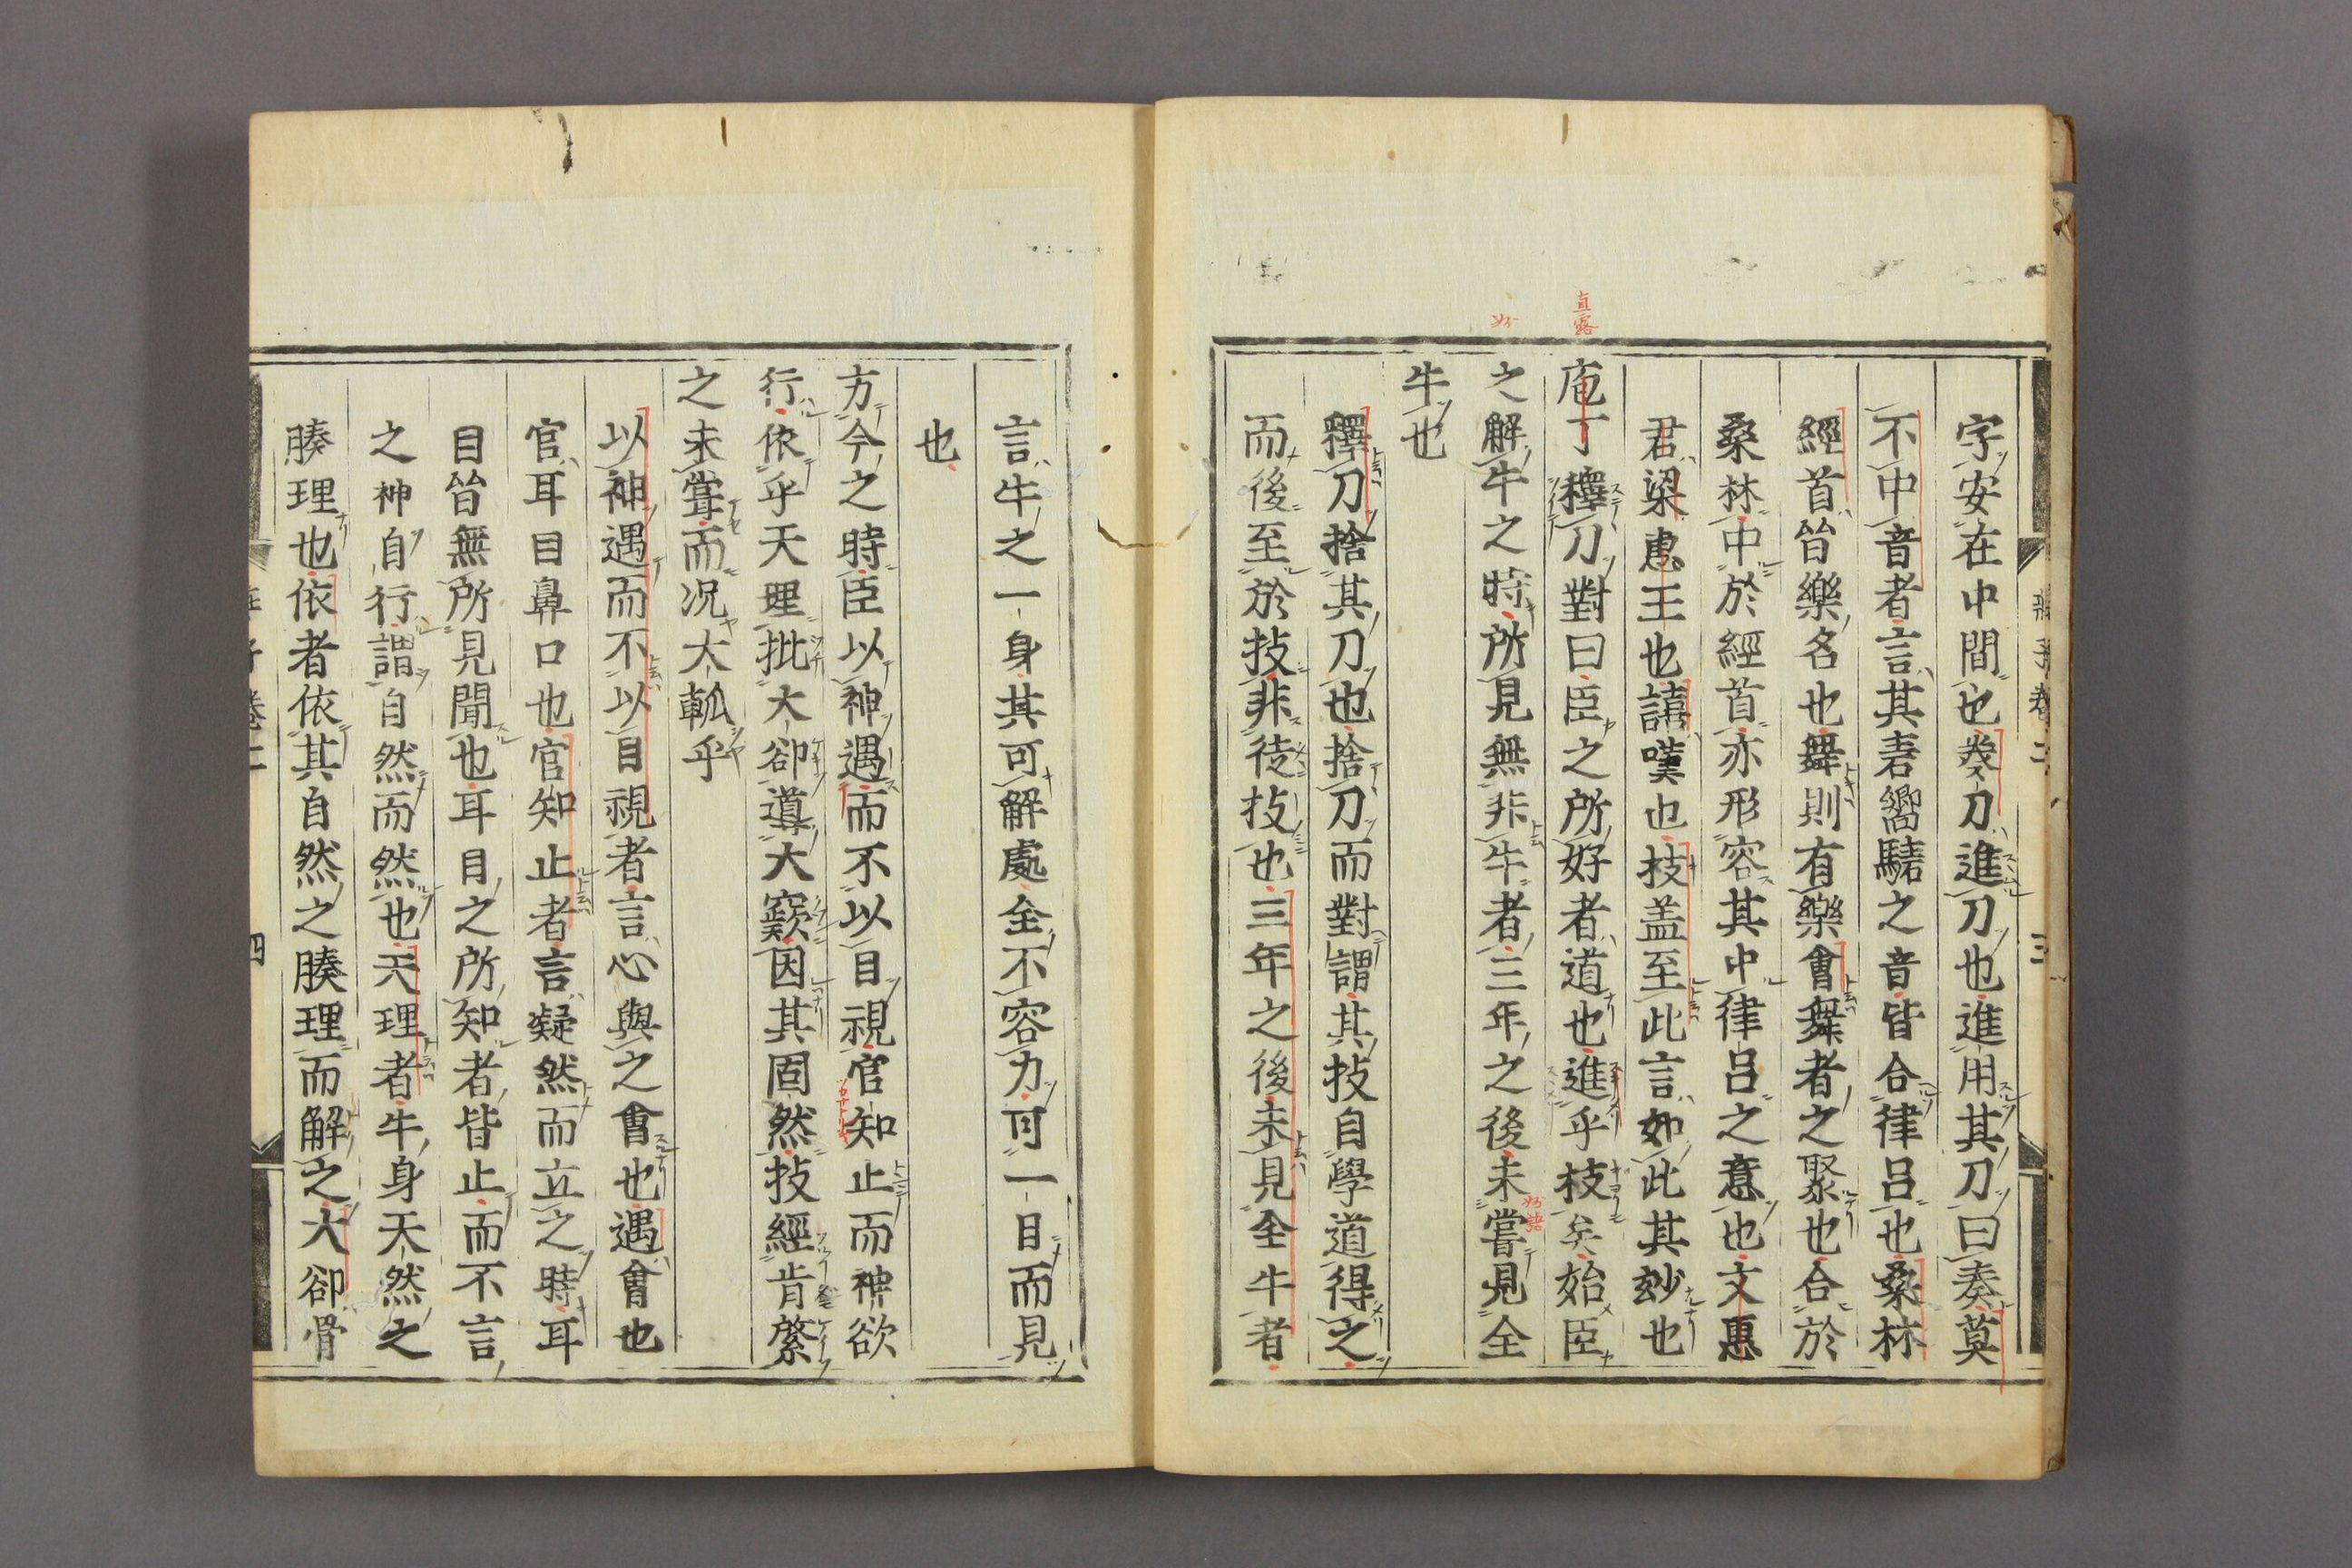 字安在中間也奏刀進刀也進用其刀曰奏莫
不中音者言其砉嚮騞之音皆合律呂也桑林
經首皆樂名也舞則有樂會舞者之聚也合於
桑林中於經首亦形容其中律呂之意也文惠
君梁惠王也譆嘆也技盖至此言如此其玅也
庖丁釋刀對曰臣之所好者道也進乎技矣始臣
之解牛之時所見無非牛者三年之後未嘗見全
牛也
釋刀捨其刀也捨刀而對謂其技自學道得之
而後至於技非徒技也三年之後未見全牛者
言牛之一身其可解處全不容力可一目而見
也
方今之時臣以神遇而不以目視官知止而神欲
行依乎天理批大卻導大窾因其固然技經肯綮
之未嘗而況大軱乎
以神遇而不以目視者言心與之會也遇會也
官耳目鼻口也官知止者言凝然而立之時耳
目皆無所見聞也耳目之所知者皆止而不言
之神自行謂自然而然也天理者牛身天然之
腠理也依者依其自然之腠理而解之大卻骨